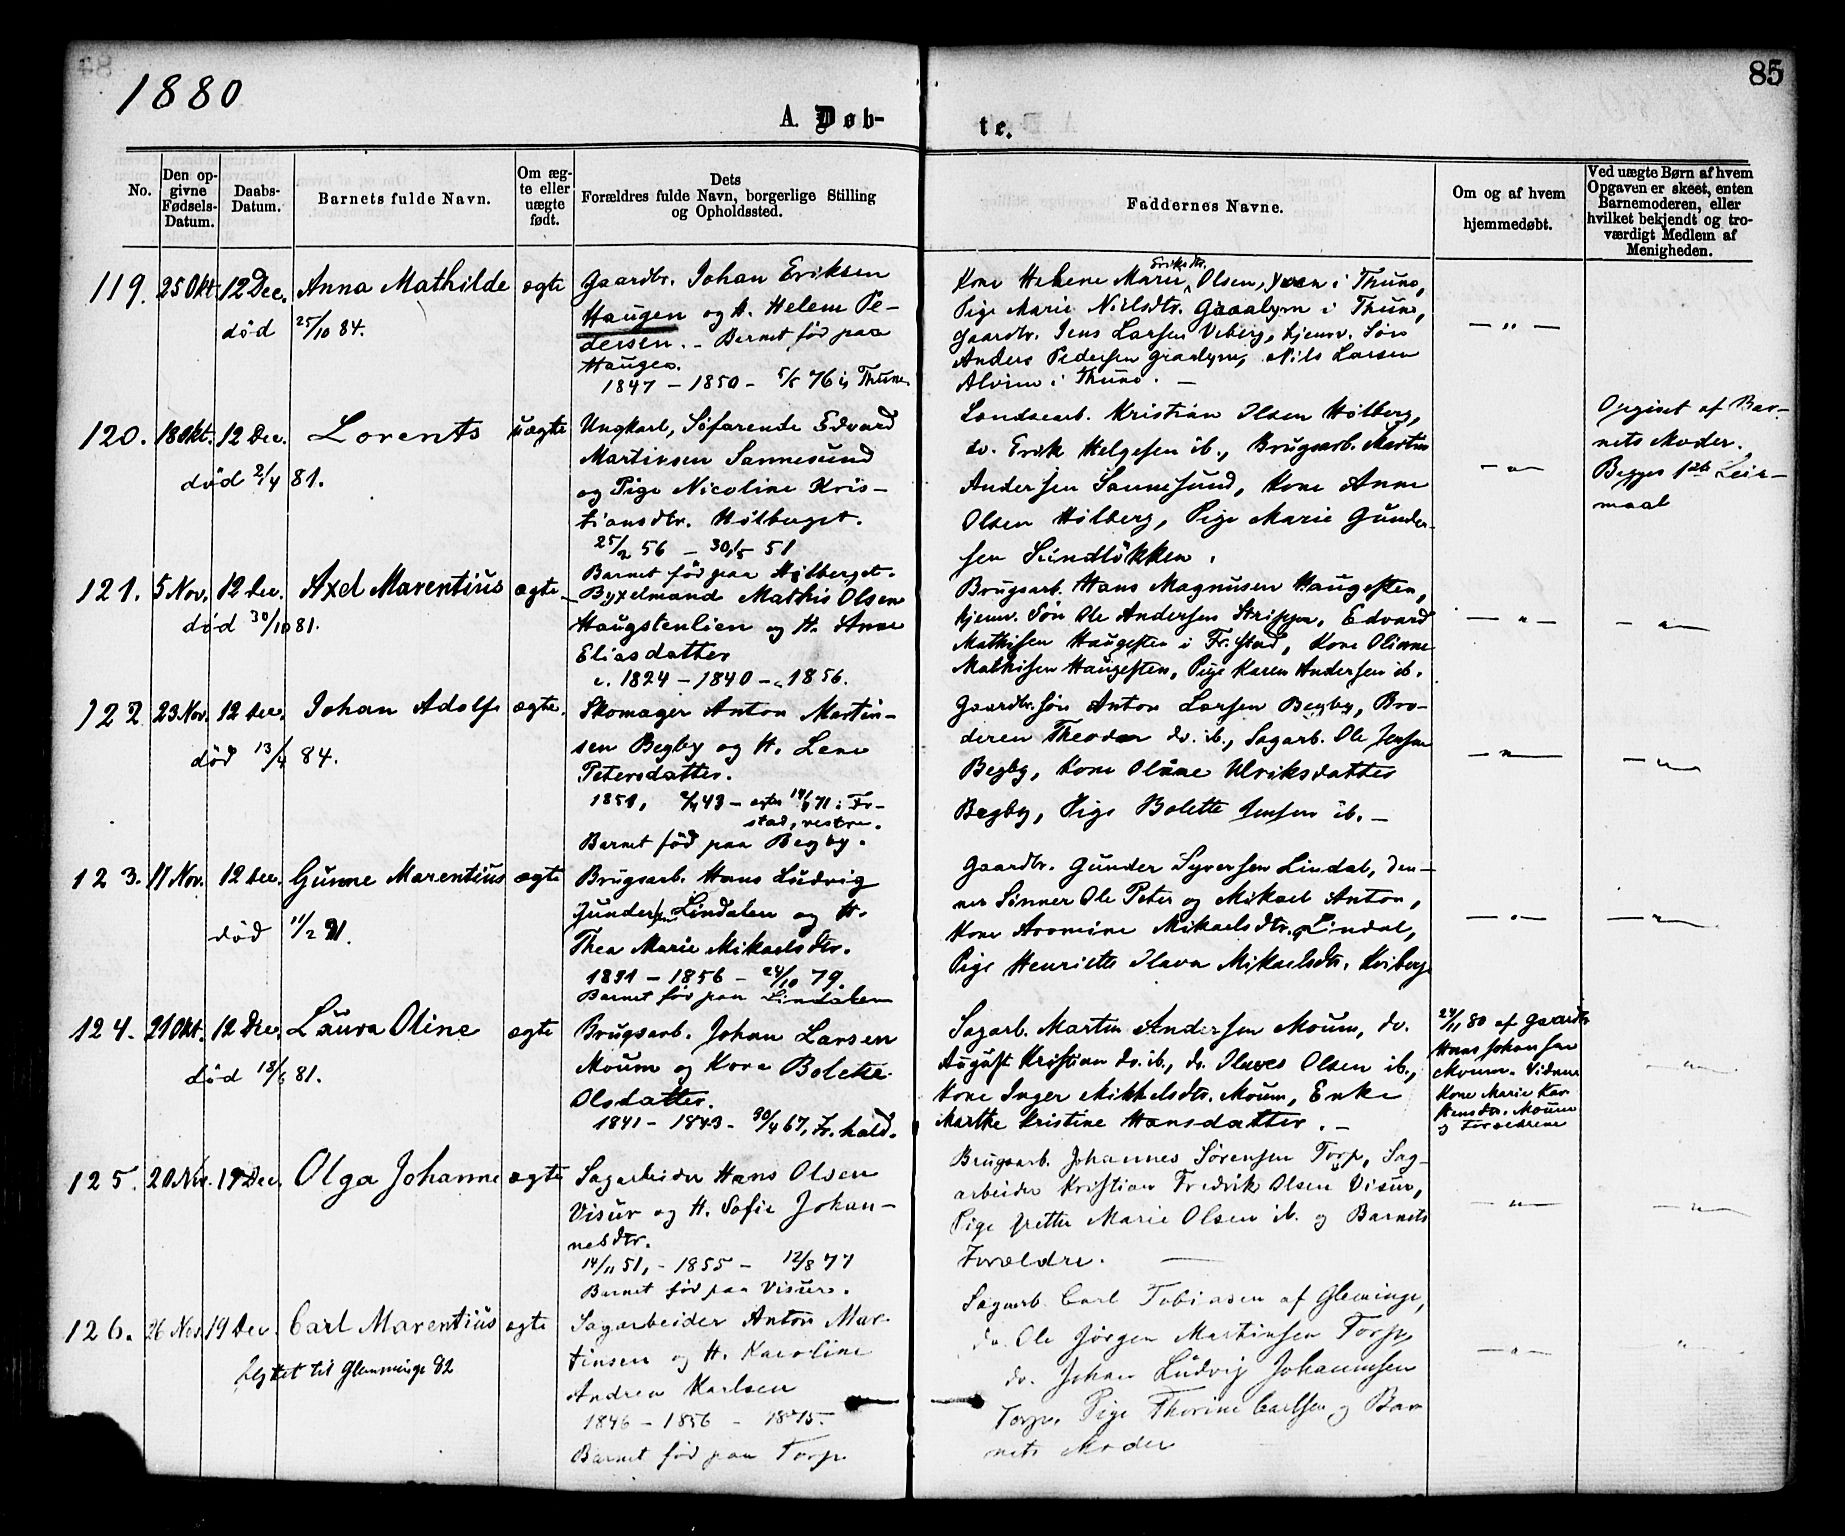 84
1880
85
A. Døb-
te.
No.
Den op-
givne
Fødsels-
Datum.
Daabs-
Datum.
Barnets fulde Navn.
Om æg-
te eller
uægte
født.
Dets
Forældres fulde Navn, borgerlige Stilling
og Opholdssted.
Faddernes Navne.
Om og af hvem
hjemmedøbt.
Ved uægte Børn af hvem
Opgaven er skeet, enten
Barnemoderen, eller
hvilket bekjendt og tro-
værdigt Medlem af
Menigheden.
119. 25 Okt. 12 Dec. Anna Mathilde ægte
død 25/10 84.
Gaardbr. Johan Eriksen
Haugen og H. Helene Pe-
dersen. - Barnet fød paa
Haugen.
1847 - 1850 - 5/5 76 i Thune
Eriksdtr.
Kone Helene Marie Olsen, i Thunø,
Pige Marie Nielsdtr. Graalym i Thunø,
Gaardbr. Jens Larsen Viberg, hjemv. Søn
Anders Pedersen Graalym, Nils Larsen
Alvim i Thunø. -
- " -
120. 18 Okt. 12 Dec. Lorents uægte
død 2/4 81.
Ungkarl, Søfarende Edvard
Martinsen Sannesund
og Pige Nicoline Kris-
tiansdtr. Hølberget.
25/2 56 - 30/5 51
Barnet fød paa Hølberget.
Landsarb. Kristian Olsen Hølberg,
do. Erik Helgesen ib., Brugsarb. Martin
Andersen Sannesund, Kone Anne
Olsen Hølberg, Pige Marie Gunder-
sen Sundløkken.
- " -
Opgivet af Bar-
nets Moder.
Begges 1ste Leier-
maal
121. 5 Nov. 12 Dec. Axel Marentius ægte
død 30/10 81.
Byxelmand Mathis Olsen
Haugstenlien og H. Anne
Eliasdatter
c. 1824 - 1840 - 1856.
Brugsarb. Hans Magnusen Haugesten,
hjemv. Søn Ole Andersen Strippa, Edvard
Mathisen Haugesten i Fr.stad, Kone Olianne
Mathisen Haugesten, Pige Karen Andersen ib.
- " -
- " -
122 23 Nov. 12 Dec. Johan Adolf ægte.
død 13/4 84.
Skomager Anton Martin-
sen Begby og H. Lene
Petersdatter.
1851, 43 - 71 i Fr-
stad, vestre.
Barnet fød paa Begby.
Gaardbr.søn Anton Larsen Begby, Bro-
deren Theodor do. ib., Sagarb. Ole Jensen
Begby, Kone Oline Ulriksdatter
Begby, Pige Bolette Jensen ib. -
- " -
- " -
123. 11 Nov. 12 Dec. Gunne Marentius ægte
død 11/2 91.
Brugsarb. Hans Ludvig
Gundersen Lindalen og H.
Thea Marie Mikaelsdtr.
1851 - 1856 - 24/10 79.
Barnet fød paa Lindalen
Gaardbr. Gunder Syversen Lindal, den-
nes Sønner Ole Peter og Mikael Anton,
Kone Mikaelsdtr. Lindal,
Pige Henriette Olava Mikaelsdtr. Kviberg
- " -
- " -
124. 21 Okt. 12 Dec. Laura Oline ægte
død 18/6 81.
Brugsarb. Johan Larsen
Moum og Kone Bolette
Olsdatter.
1841 - 1843 - 30/4 67, Fr.hald.
Sagarb. Martin Andersen Moum, do.
August Kristian do. ib., do. Olaves Olsen ib.,
Kone Inger Mikkelsdtr. Moum, Enke
Marthe Kristine Hansdatter. -
24/11 80 af Gaardbr
Hans Johansen
Moum. Vidner
Kone Marie Kar-
stensdtr. Moum
og Forældrene
"
125. 20 Nov. 19 Dec. Olga Johanne ægte
Sagarbeider Hans Olsen
Visur og H. Sofie Johan-
nesdtr.
14/11 51, - 1855 - 12/8 77
Barnet fød paa Visur.
Brugsarb. Johannes Sørensen Torp, Sag-
arbeider Kristian Fredrik Olsen Visur,
Pige Grette Marie Olsen ib. og Barnets
Forældre.
- " -
- " -
126. 26 Nov. 19 Dec. Carl Marentius ægte
flyttet til Glemminge 82
Sagarbeider Anton Mar-
tinsen og H. Karoline
Andrea Karlsen
1846 - 1856 - 1875.
Barnet fød paa Torp.
Sagarb. Carl Tobiasen af Gleminge,
do. Ole Jørgen Martinsen Torp,
do. Johan Ludvig Johannesen
Torp, Pige Thorine Carlsen og Bar-
nets Moder
- " -
"